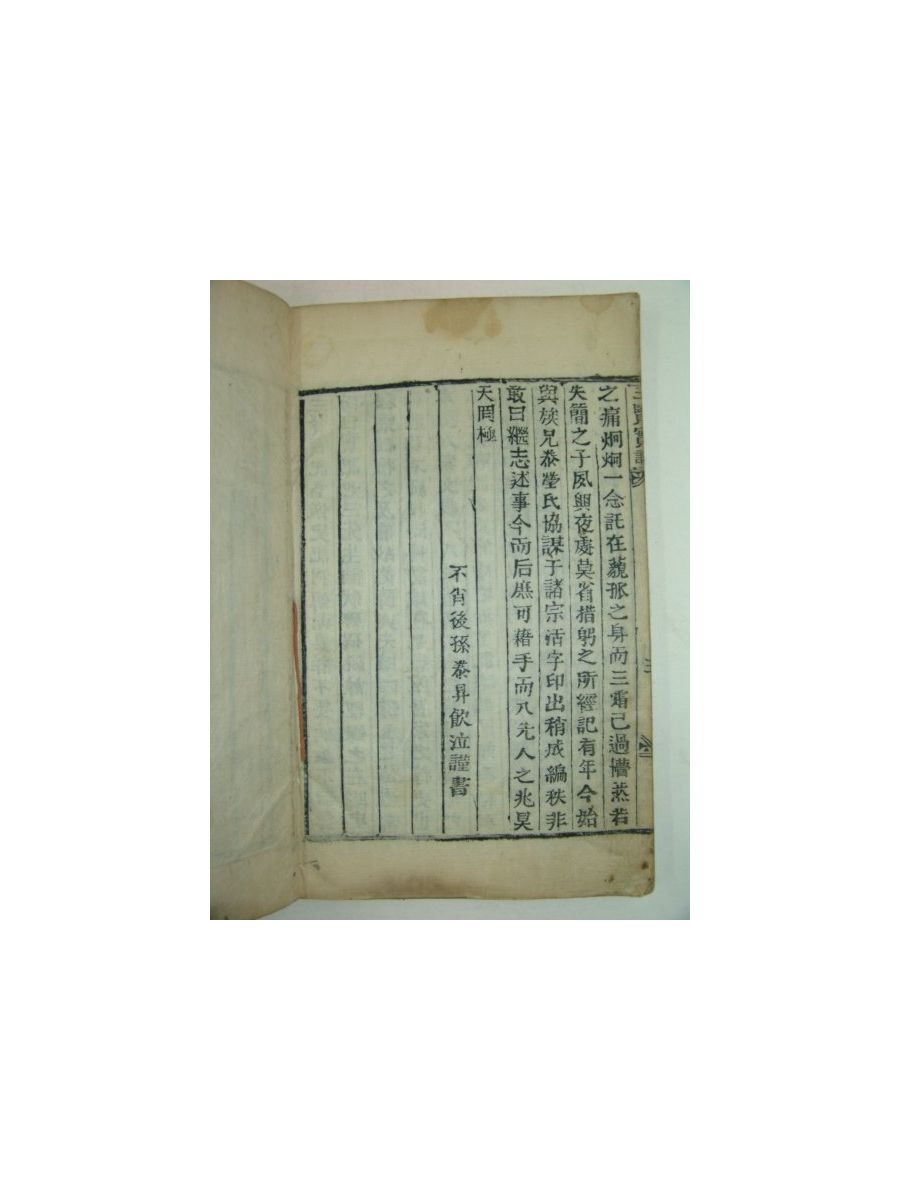 三賢實記
三
之痛炯炯一念託在藐孤之身而三霜已過懵然若
失簡之予夙興夜處莫省措躬之所經記有年今始
與族兄泰瑩氏協謀于諸宗活字印出稍成編秩非
敢曰繼志述事今而后庶可藉手而入先人之兆昊
天罔極
不肖後孫泰昇飮泣謹書